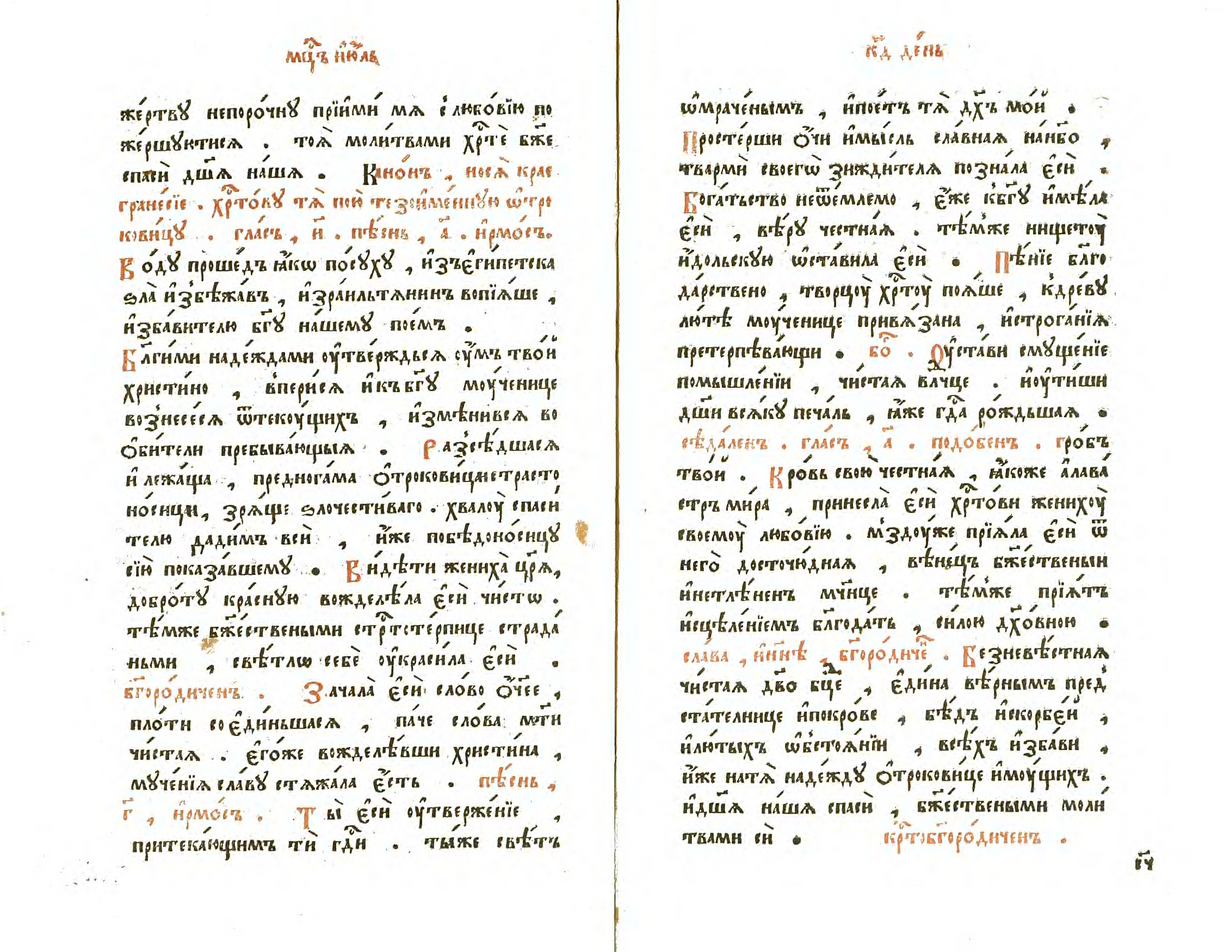 мцⷭ҇ъ і҆ю́ль
же́ртвꙋ непоро́чнꙋ прїими́ мѧ с любо́вїю по
же́ршꙋютисѧ . тоѧ̀ моли́твами хрⷭ҇тѐ бж҃е
спасѝ дш҃ѧ на́шѧ . Кано́нъ , носѧ̀ крае
гране́сїе . хрⷭ҇то́вꙋ тѧ̀ пою̀ тезоиме́ннꙋю ѻ҆тро
кови́цꙋ . гла́съ , и҃ . пѣ́снь , а҃ . і҆рмо́съ .
Во́дꙋ проше́дъ ꙗ҆́кѡ по́сꙋхꙋ , и҆зъєги́петска
ѕла̀ и҆збѣжа́въ , і҆зра́ильтѧнинъ вопїѧ́ше ,
и҆зба́вителю бг҃ꙋ на́шемꙋ пое́мъ .
Бл҃ги́ми наде́ждами оу҆твержьсѧ оу҆́мъ тво́й
христи́но , впери́сѧ и҆къбг҃ꙋ моу́ченице
возне́сесѧ ѿтекоу́щихъ , и҆змѣни́всѧ во
ѻ҆би́тели пребыва́ющыѧ . Разсѣ́дшасѧ
и҆ лежа́ща , преднога́ма ѻ҆трокови́цаистрасто
но́сицы , зрѧ́ще ѕлочести́ваго . хвалоу̀ спаси́
телю дади́мъ всѝ , и҆́же побѣдоно́сицꙋ
сїю̀ показа́вшемꙋ . Ви́дѣти жениха̀ цр҃ѧ̀ ,
добро́тꙋ кра́снꙋю вожделѣ́ла є҆сѝ чи́стѡ .
тѣ́мже бж҃е́ствеными стрⷭ҇тоте́рпице страда́
ньми , свѣ́тлѡ себѐ оу҆краси́ла є҆сѝ .
бг҃оро́диченъ . Зачала̀ є҆сѝ сло́во ѻ҆́ч҃ее ,
пло́ти соєди́ньшасѧ , па́че сло́ва мт҃и
чи́стаѧ . є҆го́же вожделѣ́вши христи́на ,
мꙋче́нїѧ сла́вꙋ стѧжа́ла є҆́сть . пѣ́снь ,
г҃ , і҆рмо́съ . Ты̀ є҆сѝ оу҆твержде́нїе ,
притека́ющимъ тѝ гд҃и . ты́же свѣ́тъ
к҃д де́нь
ѡ҆мраче́нымъ , и҆пое́тъ тѧ̀ дх҃ъ мо́й .
Просте́рши ѻ҆́чи и҆мы́сль сла́внаѧ на́нбо ,
тва́рми своегѡ̀ зижди́телѧ позна́ла є҆сѝ .
Бога́тьство неѿе́млемо , є҆́же кбг҃ꙋ и҆мѣ́ла
є҆сѝ , вѣ́рꙋ че́стнаѧ . тѣ́мже нищетоу̀
и҆́дольскꙋю ѡ҆ста́вила є҆сѝ . Пѣ́нїе бл҃го
да́рствено , творцоу̀ хрⷭ҇тоу̀ поѧ́ше , кдре́вꙋ
лю́тѣ моу́ченице привѧ́зана , и҆строга́нїѧ
претерпѣва́ющи . бо҃ . Оу҆ста́ви смꙋще́нїе
помышле́нїи , чи́стаѧ влⷣчце . и҆оу҆тишѝ
дш҃и всѧ́кꙋ печа́ль , ꙗ҆́же гдⷭ҇а ро́ждьшаѧ .
сѣда́ленъ . гла́съ , а҃ . подо́бенъ . гро́бъ
тво́й . Кро́вь свою̀ че́стнаѧ , ꙗ҆́коже а҆лава́
стръ ми́ра , принесла̀ є҆сѝ хрⷭ҇то́ви женихоу̀
своемоу̀ любо́вїю . мздоу́же прїѧ́ла є҆сѝ ѿ
него̀ досточю́днаѧ , вѣне́цъ бж҃е́ственыи
и҆нетлѣ́ненъ мч҃нице . тѣ́мже прїѧ́тъ
и҆сцѣле́нїемъ бл҃года́ть , си́лою дх҃о́вною .
сла́ва , и҆ны́нѣ , бг҃оро́диче . Безневѣ́стнаѧ
чи́стаѧ дв҃о бц҃е , є҆ди́на вѣ́рнымъ пред
ста́телнице и҆покро́ве , бѣ́дъ и҆скорбе́й ,
и҆лю́тыхъ ѡ҆бстоѧ́нїи , всѣ́хъ и҆зба́ви ,
и҆́же натѧ̀ наде́ждꙋ ѻ҆трокови́це и҆моу́щихъ .
и҆дш҃ѧ на́шѧ спасѝ , бж҃е́ствеными моли́
твами сѝ . крⷭ҇тобг҃оро́диченъ .